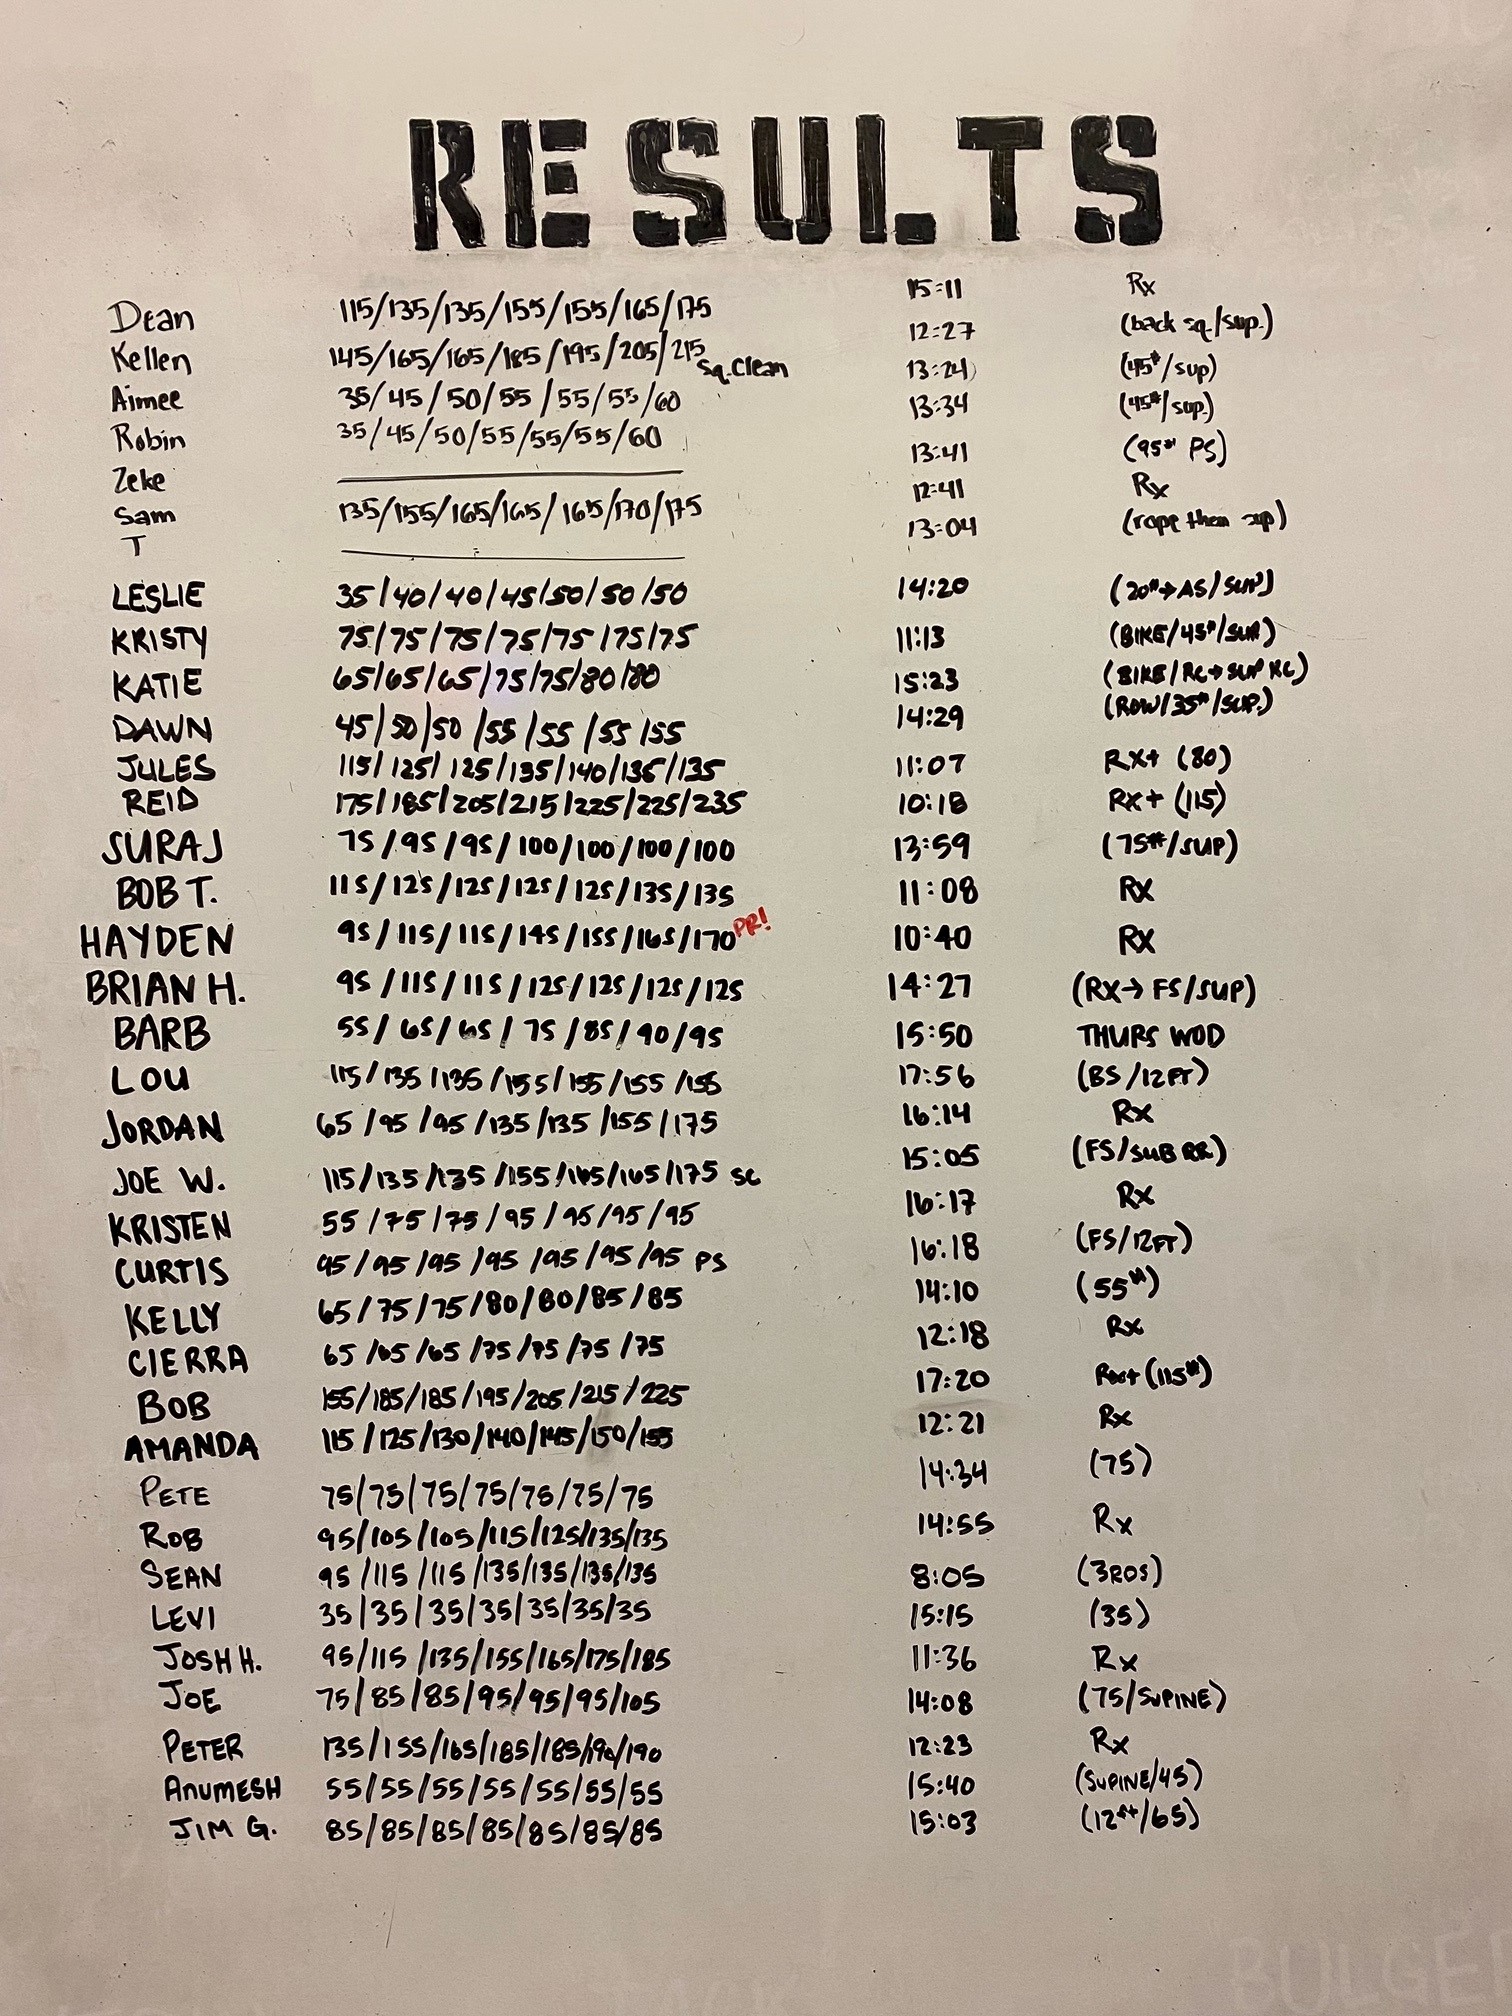 RESULTS
Dean 115/135/135/155/155/165/175 15:11 Rx
Kellen 145/165/165/185/195/205/215 Sq. Clean 12:27 (back sq./sup.)
Aimee 35/45/50/55/55/55/60 13:24 (45#/sup)
Robin 35/45/50/55/55/55/60 13:34 (45#/sup.)
Zeke 13:41 (95# PS)
Sam 135/155/165/165/165/170/175 12:41 Rx
T 13:04 (rope them sup)
LESLIE 35/40/40/45/50/50/50 14:20 (20#→AS/SUP)
KRISTY 75/75/75/75/75/75/75 11:13 (BIKE/45#/SUP)
KATIE 65/65/65/75/75/80/80 15:23 (BIKE/RC→SUP RC)
DAWN 45/50/50/55/55/55/55 14:29 (ROW/35#/SUP.)
JULES 115/125/125/135/140/135/135 11:07 RX+ (80)
REID 175/185/205/215/225/225/235 10:18 RX+ (115)
SURAJ 75/95/95/100/100/100/100 13:59 (75#/SUP)
BOB T. 115/125/125/125/125/135/135 11:08 RX
HAYDEN 95/115/115/145/155/165/170 PR! 10:40 RX
BRIAN H. 95/115/115/125/125/125/125 14:27 (RX→FS/SUP)
BARB 55/65/65/75/85/90/95 15:50 THURS WOD
LOU 115/135/135/155/155/155/155 17:56 (BS/12FT)
JORDAN 65/95/95/135/135/155/175 16:14 Rx
JOE W. 115/135/135/155/165/165/175 SC 15:05 (FS/SUB RR)
KRISTEN 55/75/75/95/95/95/95 16:17 Rx
CURTIS 95/95/95/95/95/95/95 PS 16:18 (FS/12FT)
KELLY 65/75/75/80/80/85/85 14:10 (55#)
CIERRA 65/65/65/75/75/75/75 12:18 Rx
BOB 155/185/185/195/205/215/225 17:20 Rx+ (115#)
AMANDA 115/125/130/140/145/150/155 12:21 Rx
PETE 75/75/75/75/75/75/75 14:34 (75)
ROB 95/105/105/115/125/135/135 14:55 Rx
SEAN 95/115/115/135/135/135/135 8:05 (3RDS)
LEVI 35/35/35/35/35/35/35 15:15 (35)
JOSH H. 95/115/135/155/165/175/185 11:36 Rx
JOE 75/85/85/95/95/95/105 14:08 (75/SUPINE)
PETER 135/155/165/185/185/190/190 12:23 Rx
ANUMESH 55/55/55/55/55/55/55 15:40 (SUPINE/45)
JIM G. 85/85/85/85/85/85/85 15:03 (12ft/65)